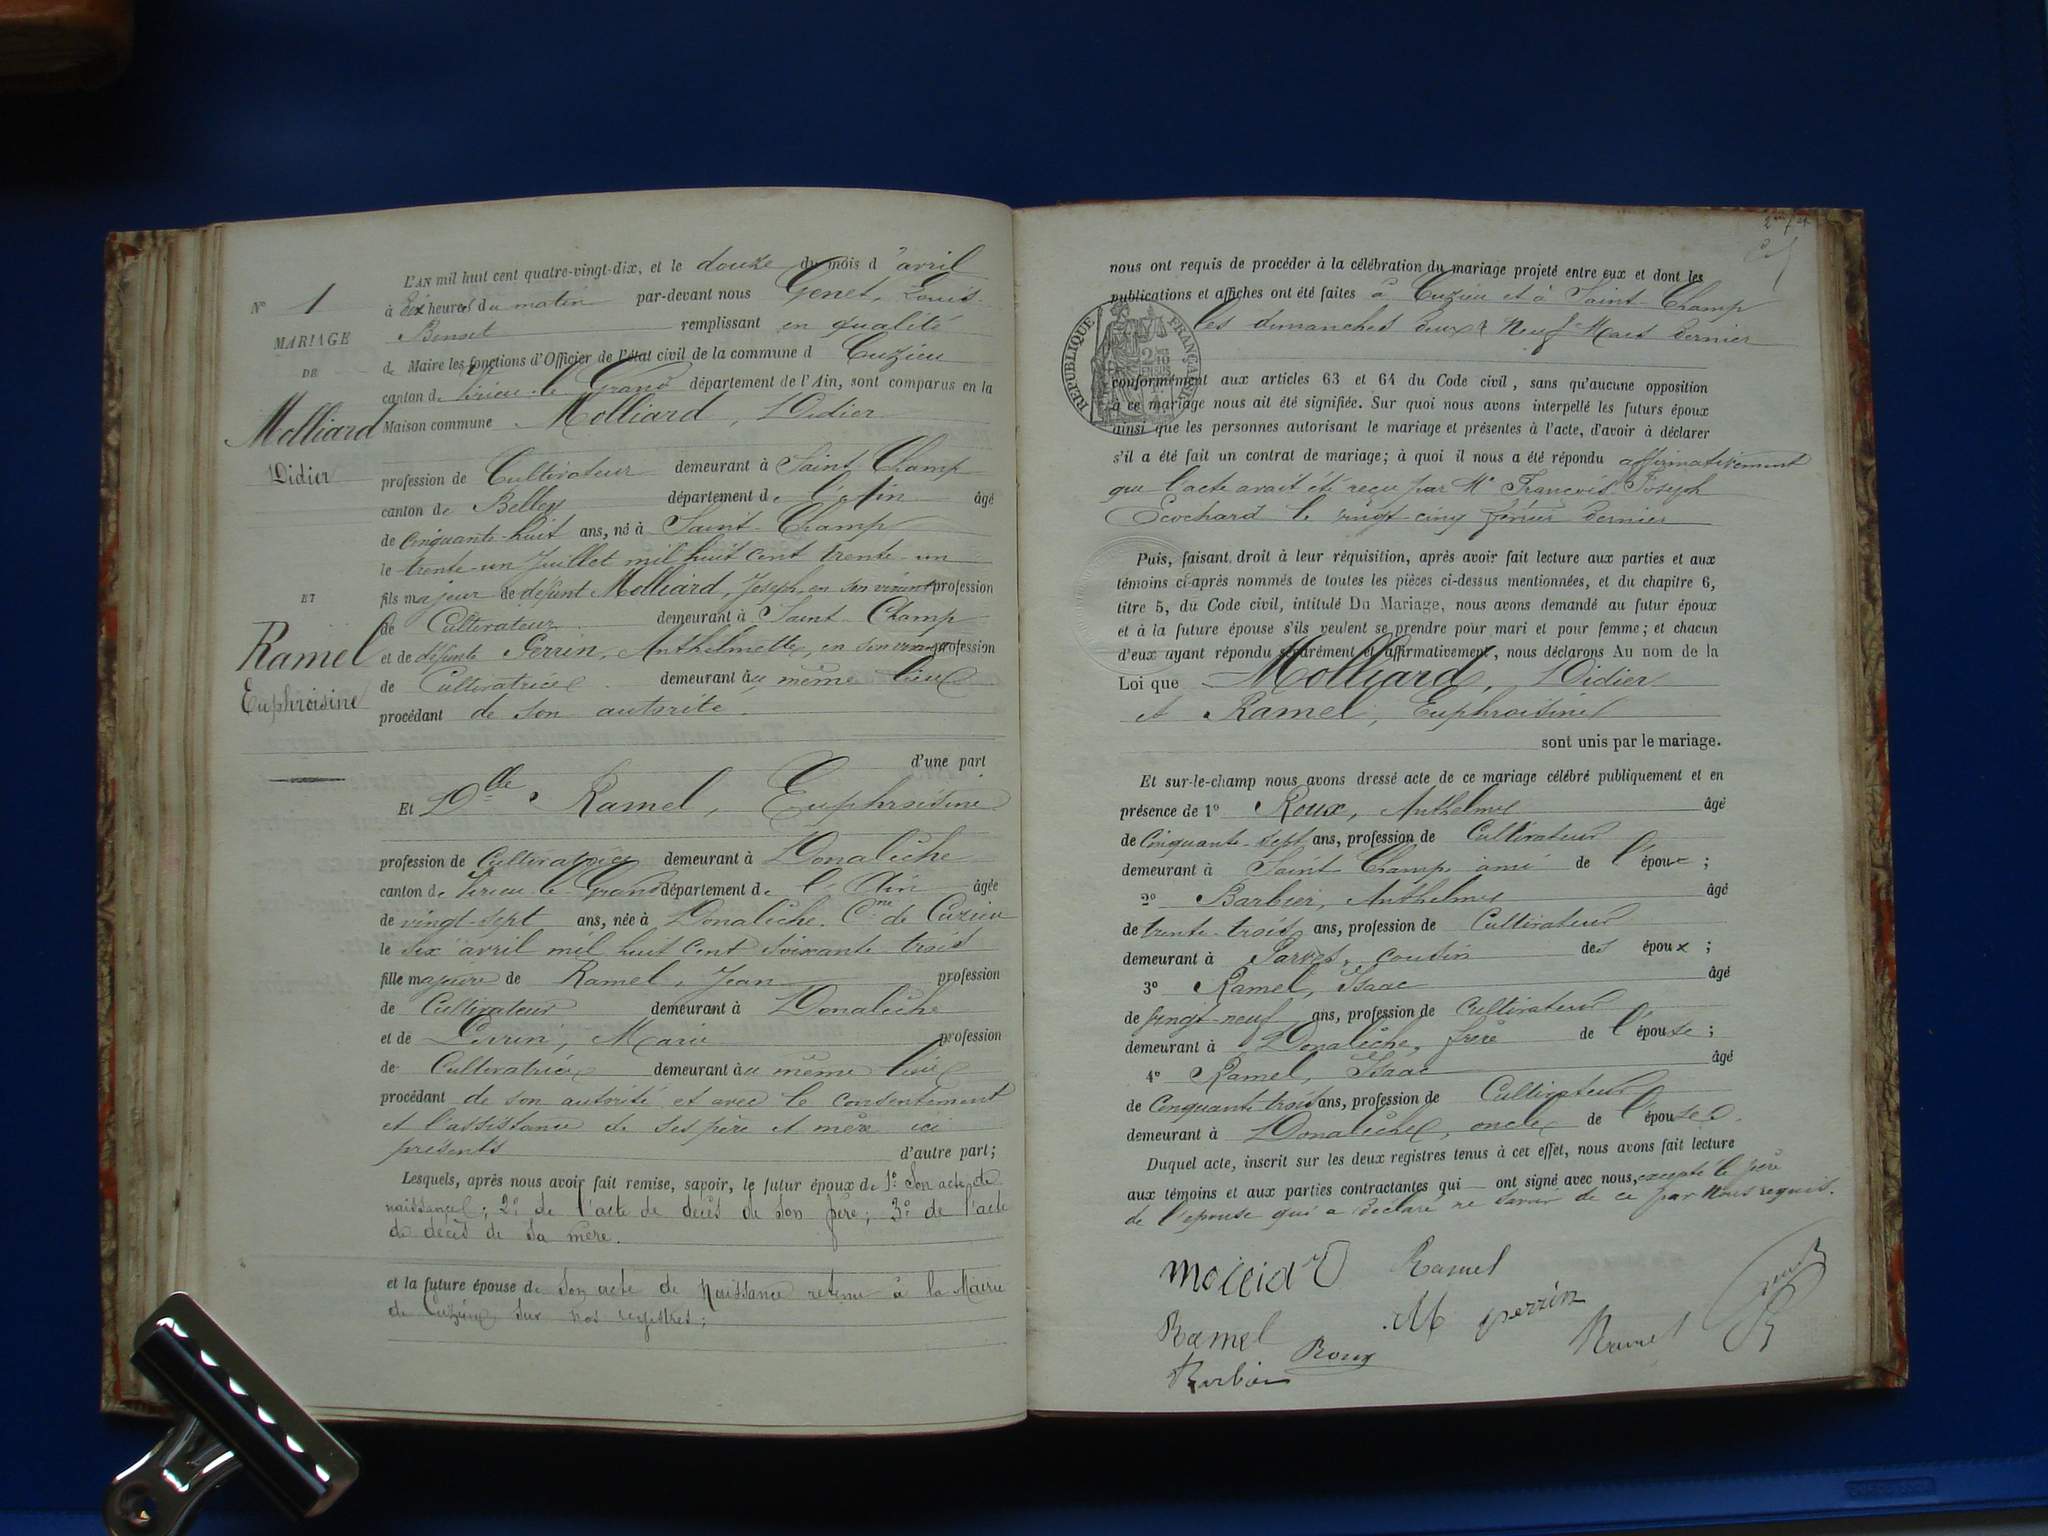 N° 1
MARIAGE
DE
Molliard
Didier
ET
Ramel
Euphroisine
L'AN mil huit cent quatre-vingt-dix, et le douze du mois d'avril
à dix heures du matin par-devant nous Genet, Louis-
Benoit remplissant en qualité
de Maire les fonctions d'Officier de l'état civil de la commune d Cuzieu
canton de Virieu-le-Grand département de l'Ain, sont comparus en la
Maison commune Molliard, Didier
profession de Cultivateur demeurant à Saint-Champ
canton de Belley département de l'Ain âgé
de Cinquante-huit ans, né à Saint-Champ
le trente-un Juillet mil huit cent trente-un
fils majeur de défunt Molliard, Joseph, en son vivant profession
de Cultivateur demeurant à Saint-Champ
et de défunte Perrin, Anthelmette, en son vivant profession
de Cultivatrice demeurant au même lieu
procédant de son autorité
d'une part
Et Dlle Ramel, Euphroisine
profession de Cultivatrice demeurant à Donalèche
canton de Virieu-le-Grand département de l'Ain âgée
de vingt-sept ans, née à Donalèche, Cne de Cuzieu
le six avril mil huit cent soixante trois
fille majeure de Ramel, Jean profession
de Cultivateur demeurant à Donalèche
et de Perrin, Marie profession
de Cultivatrice demeurant au même lieu
procédant de son autorité et avec le consentement
et l'assistance de ses père et mère ici
présents d'autre part;
Lesquels, après nous avoir fait remise, savoir, le futur époux de 1° Son acte de
naissance; 2° de l'acte de décès de son père; 3° de l'acte
de décès de sa mère.
et la future épouse de Son acte de Naissance retenu à la Mairie
de Cuzieu sur nos registres;
nous ont requis de procéder à la célébration du mariage projeté entre eux et dont les
publications et affiches ont été faites à Cuzieu et à Saint-Champ
les dimanches deux & Neuf Mars dernier
RÉPUBLIQUE FRANÇAISE
conformément aux articles 63 et 64 du Code civil, sans qu'aucune opposition
à ce mariage nous ait été signifiée. Sur quoi nous avons interpellé les futurs époux
ainsi que les personnes autorisant le mariage et présentes à l'acte, d'avoir à déclarer
s'il a été fait un contrat de mariage; à quoi il nous a été répondu affirmativement
que l'acte avait été reçu par Me François Joseph
Ecochard le vingt-cinq février dernier
Puis, faisant droit à leur réquisition, après avoir fait lecture aux parties et aux
témoins ci-après nommés de toutes les pièces ci-dessus mentionnées, et du chapitre 6,
titre 5, du Code civil, intitulé Du Mariage, nous avons demandé au futur époux
et à la future épouse s'ils veulent se prendre pour mari et pour femme; et chacun
d'eux ayant répondu séparément et affirmativement, nous déclarons Au nom de la
Loi que Molliard, Didier
et Ramel, Euphroisine
sont unis par le mariage.
Et sur-le-champ nous avons dressé acte de ce mariage célébré publiquement et en
présence de 1° Roux, Anthelme âgé
de Cinquante-sept ans, profession de Cultivateur
demeurant à Saint Champ ami de l'époux;
2° Barbier, Anthelme âgé
de trente-trois ans, profession de Cultivateur
demeurant à Parves, cousin des époux;
3° Ramel, Isaac âgé
de vingt-neuf ans, profession de Cultivateur
demeurant à Donalèche, frère de l'épouse;
4° Ramel, Isaac âgé
de Cinquante trois ans, profession de Cultivateur
demeurant à Donalèche, oncle de l'épouse.
Duquel acte, inscrit sur les deux registres tenus à cet effet, nous avons fait lecture
aux témoins et aux parties contractantes qui ont signé avec nous, excepté le père
de l'épouse qui a déclaré ne savoir de ce par Nous requis.
Molliard Ramel
Ramel M perrin Ramel Genet
Barbier Roux